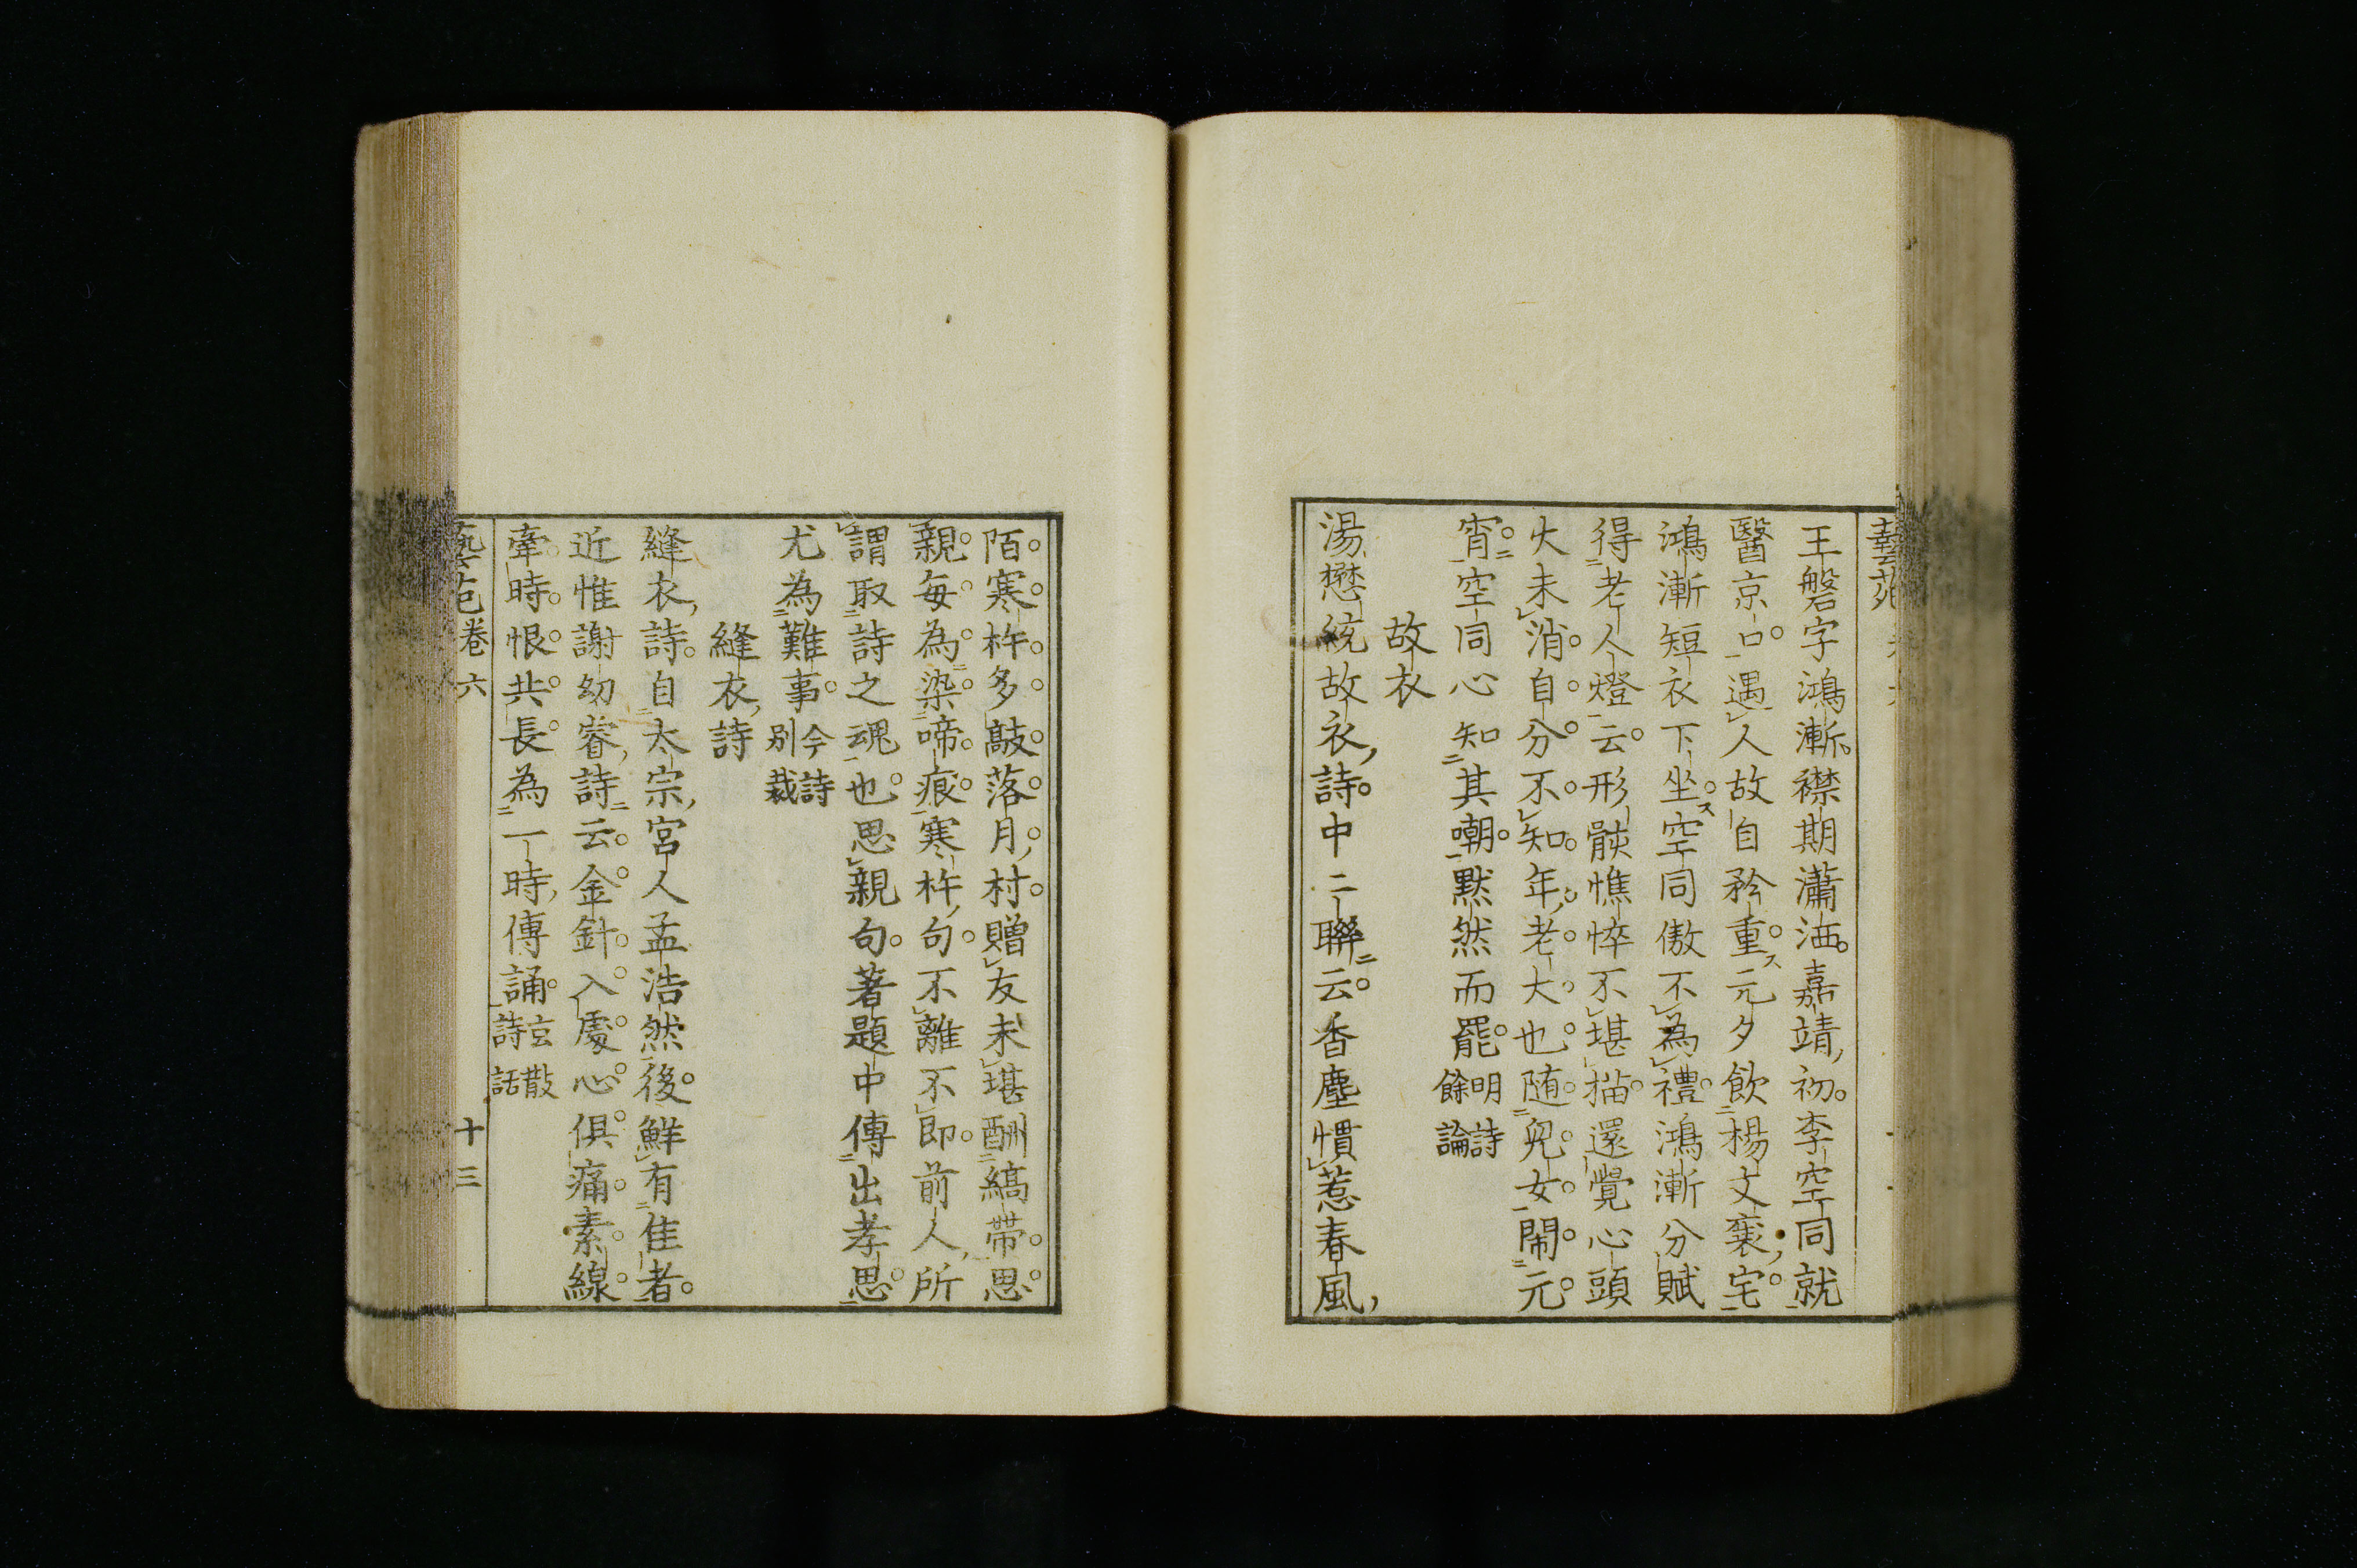 藝苑
王磐字鴻漸襟期瀟洒嘉靖初李空同就
醫京口遇人故自矜重元夕飲楊文襄宅
鴻漸短衣下坐空同傲不為禮鴻漸分賦
得老人燈云形骸憔悴不堪描還覺心頭
火未消自分不知年老大也随兒女鬧元
宵空同心知其嘲默然而罷明詩餘論
故衣
湯懋統故衣詩中二聯云香塵慣惹春風
陌寒杵多敲落月村贈友未堪酬縞帶思
親每為染啼痕寒杵句不離不即前人所
謂取詩之魂也思親句著題中傳出孝思
尤為難事今詩別裁
縫衣詩
縫衣詩自太宗宮人孟浩然後鮮有佳者
近惟謝幼睿詩云金針入處心俱痛素線
牽時恨共長為一時傳誦玄散詩話
藝苑卷六 十三